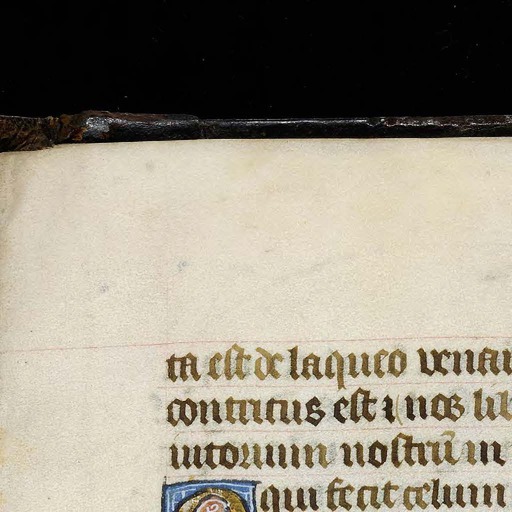 ta est de laqueo venan
contritus est ⁊ nos lib
iutorium nostrū in
qui fecit celum